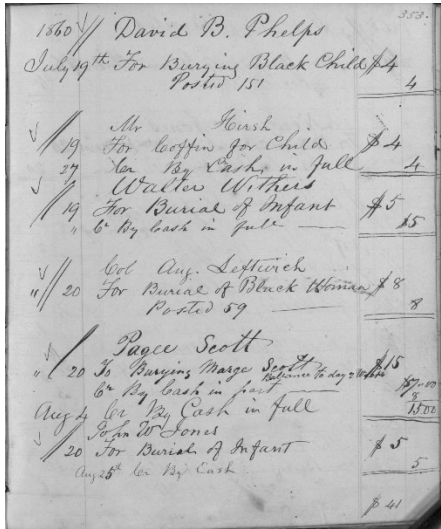 353.
1860 // David B. Phelps
July 19th For Burying Black Child $ 4
Posted 151 4
Mr Hirsh
// 19 For Coffin for Child $ 4
27 Cr By Cash in full 4
Walter Withers
// 19 For Burial of Infant $ 5
" Cr By Cash in full $5
Col Aug. Leftwich
" // 20 For Burial of Black Woman $ 8
Posted 59 8
Pagee Scott
" 20 To Burying Marge Scott $15
Balance to day 2 
Cr By Cash in part $7.00
8
Aug 4 Cr By Cash in full 15.00
John W Jones
// 20 For Burial of Infant $ 5
Aug 25th Cr By Cash 5
$ 41